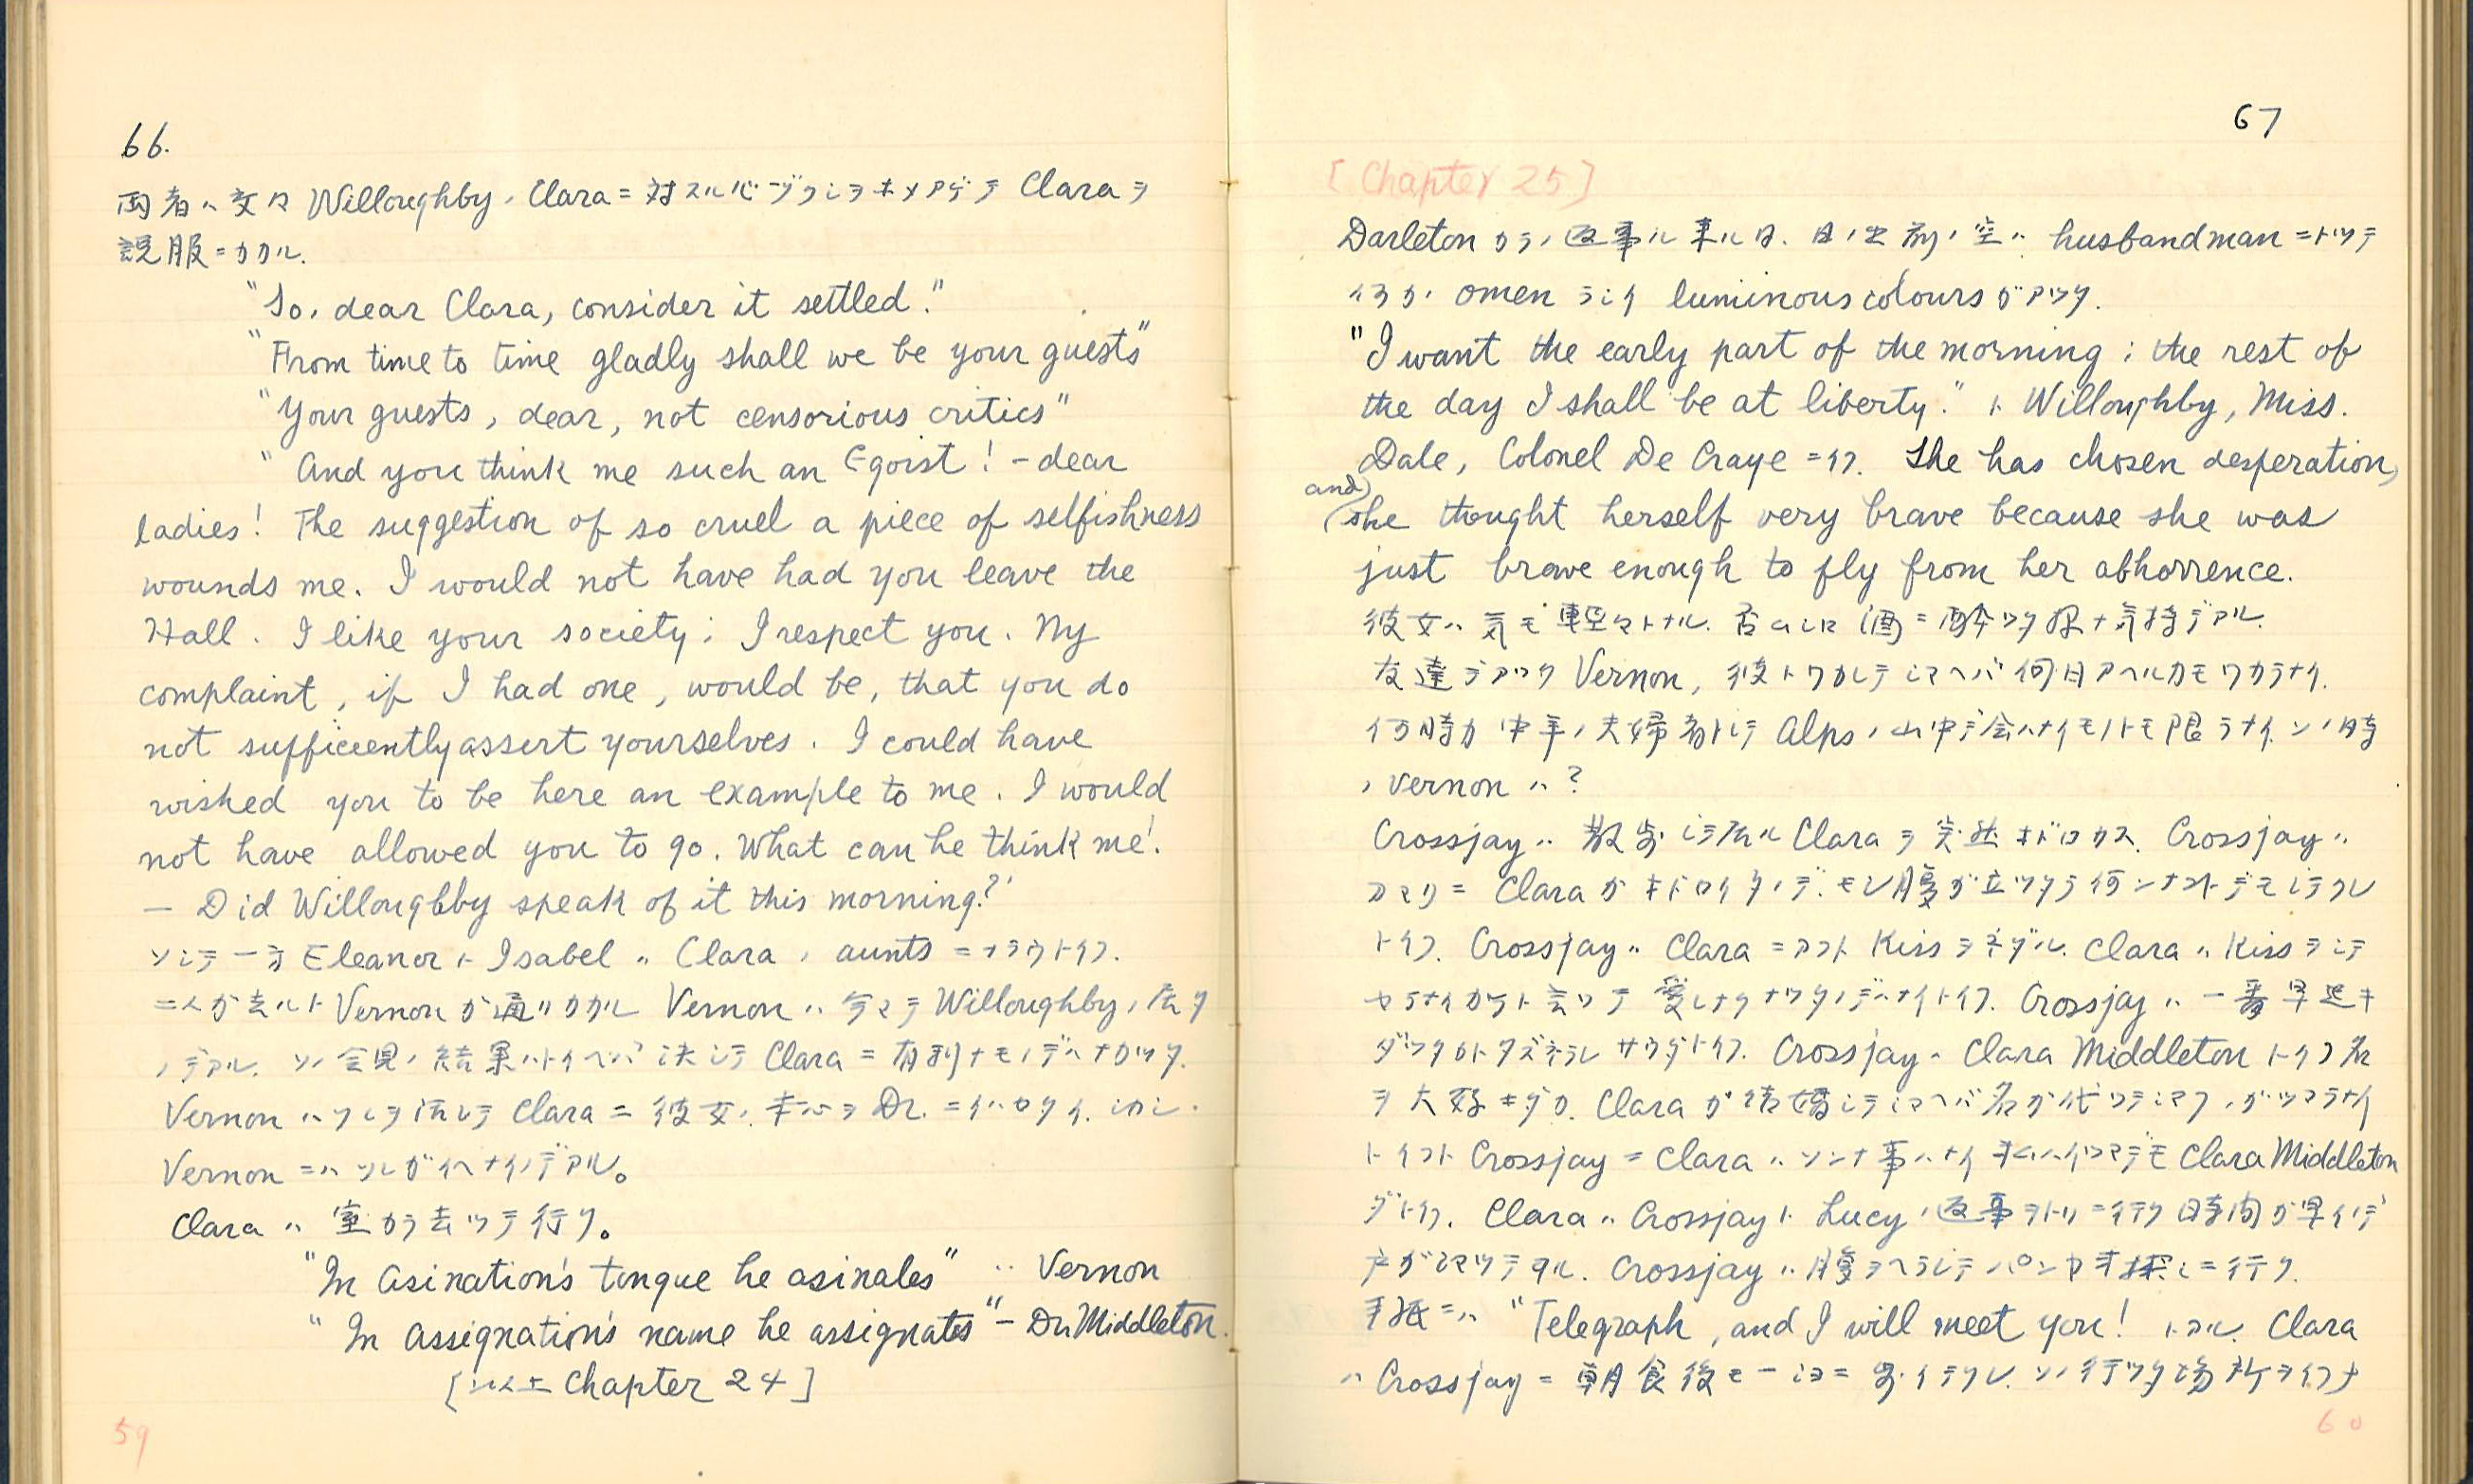 66.
両者ハ交々 Willoughby, Clara ニ対スル心ヅクシヲホメアゲテ Clara ヲ
説服ニカカル.
"So, dear Clara, consider it settled."
"From time to time gladly shall we be your guests"
"Your guests, dear, not censorious critics"
"And you think me such an Egoist! – dear
ladies! The suggestion of so cruel a piece of selfishness
wounds me. I would not have had you leave the
Hall. I like your society; I respect you. My
complaint, if I had one, would be, that you do
not sufficiently assert yourselves. I could have
wished you to be here an example to me. I would
not have allowed you to go. What can he think me!
— Did Willoughby speak of it this morning?"
ソシテ一方 Eleanor ト Isabel ハ Clara ノ aunts ニナラウトイフ.
二人が去ルト Vernon が通リカカル Vernon ハ今マデ Willoughby ノ所
ノデアル. ソノ会見ノ結果ハトイヘバ決シテ Clara ニ有利ナモノデハナカッタ.
Vernon ハソレヲ Clara ニ彼女ノ本心ヲ Dr. ニイハセタイ. シカシ
Vernon ニハソレガイヘナイノデアル。
Clara ハ室カラ去ッテ行ク。
"In Asination's tongue he asinates" ‥ Vernon
"In Assignation's name he assignats" – Dr. Middleton.
[以上 Chapter 24]
59
67
[Chapter 25]
Darleton カラノ返事ノ来ル日. 日ノ出前ノ空ハ husbandman ニトッテ
イヤナ omen ラシイ luminous colours ガアッタ.
"I want the early part of the morning; the rest of
the day I shall be at liberty." ト Willoughby, Miss.
Dale, Colonel De Craye ニイフ. She has chosen desperation,
and she thought herself very brave because she was
just brave enough to fly from her abhorrence.
彼女ハ気モ軽々トナル. 否ムシロ酒ニ酔ッタ様ナ気持デアル.
友達デアッタ Vernon, 彼トワカレテシマヘバ何日アヘルカモワカラナイ.
何時カ中年ノ夫婦者トシテ Alps ノ山中デ会ハナイモノトモ限ラナイ. ソノ時
ノ Vernon ハ?
Crossjay ハ散歩シテ居ル Clara ヲ突然オドロカス. Crossjay ハ
アマリニ Clara ガオドロイタノデ. モシ腹が立ッタラ何ンナコトデモシテクレ
トイフ. Crossjay ハ Clara ニアフト Kiss ヲネダル. Clara ハ Kiss ヲシテ
ヤラナイカラト言ッテ愛シナクナッタノデハナイトイフ. Crossjay ハ一番早起キ
ダッタカトタズネラレサウダトイフ. Crossjay ハ Clara Middleton トイフ名
ヲ大好キダカ. Clara が結婚シテシマヘバ名が代ッテシマフノガツマラナイ
トイフト Crossjay ニ Clara ハソンナ事ハナイ私ハイツマデモ Clara Middleton
ダトイフ. Clara ハ Crossjay ト Lucy ノ返事ヲトリニ行ク時間が早イノデ
戸ガシマッテヰル. Crossjay ハ腹ヲヘラシテパンヤヲ探シニ行ク.
手紙ニハ "Telegraph, and I will meet you! トアル. Clara
ハ Crossjay ニ朝食後モ一ショニ歩イテクレ. ソノ行ッタ場所ヲイフナ
60